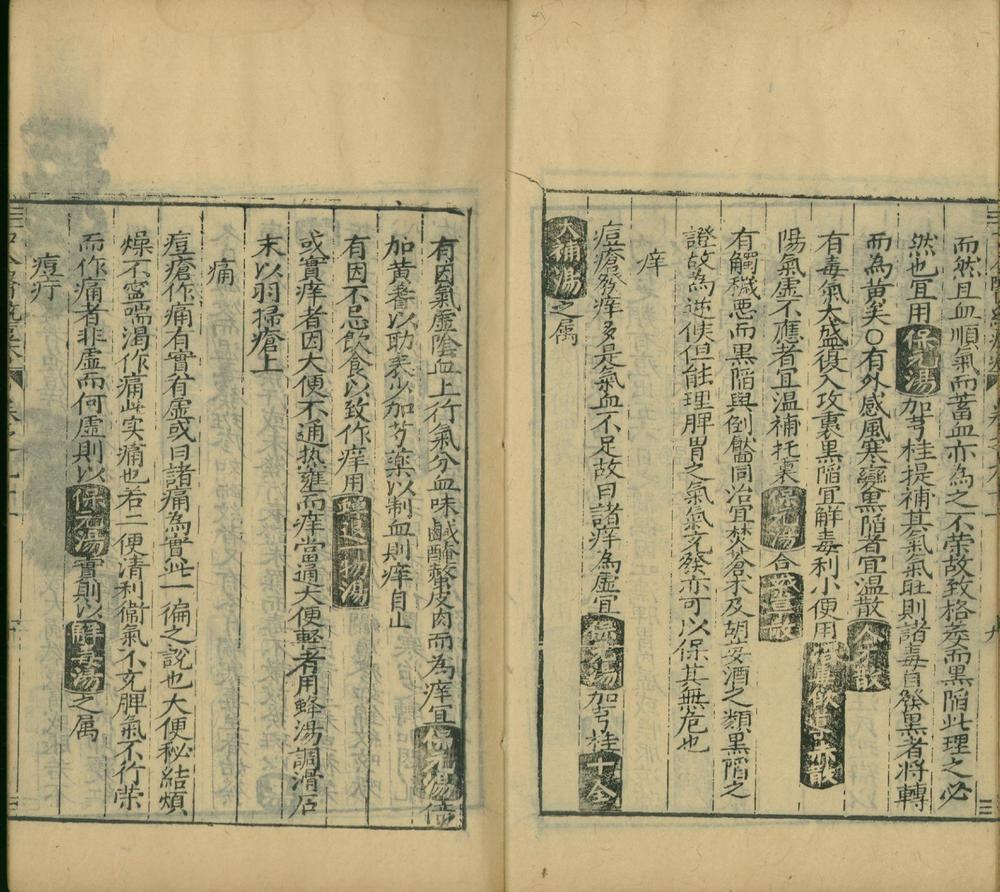 而然且血順氣而蓄血亦為之不荣故致格套而黒陷此理之必
然也宜用保元湯加芎桂提補其氣氣旺則諸毒自發黒者將轉
而為黄矣〇有外感風寒變黒陷者宜温散
有毒氣太盛復入攻裏黒陷宜解毒利小便用
陽氣虚不應者宜温補托裏保元湯合
有觸穢恶而黒陷與倒黶同治宜焚蒼术及胡荽酒之類黒陷之
證故為逆候但能理脾胃之氣氣充發亦可以保其無危也
痒
痘瘡發痒多是氣血不足故曰諸痒為虚宜保元湯加芎桂十全
大補湯之属
有因氣虚隂血上行氣分血味鹹醶螫皮肉而為痒宜保元湯倍
加黄耆以助表少加芍薬以制血則痒自止
有因不忌飲食以致作痒用蟬退一物湯
或實痒者因大便不通热壅而痒當通大便輕者用蜂湯調滑石
末以羽掃瘡上
痛
痘瘡作痛有實有虚或曰諸痛為實此一偏之說也大便秘結煩
燥不寧喘渇作痛此实痛也若二便清利衛氣不充脾氣不行荣
而作痛者非虚而何虚則以保元湯實則以解毒湯之属
痘疔